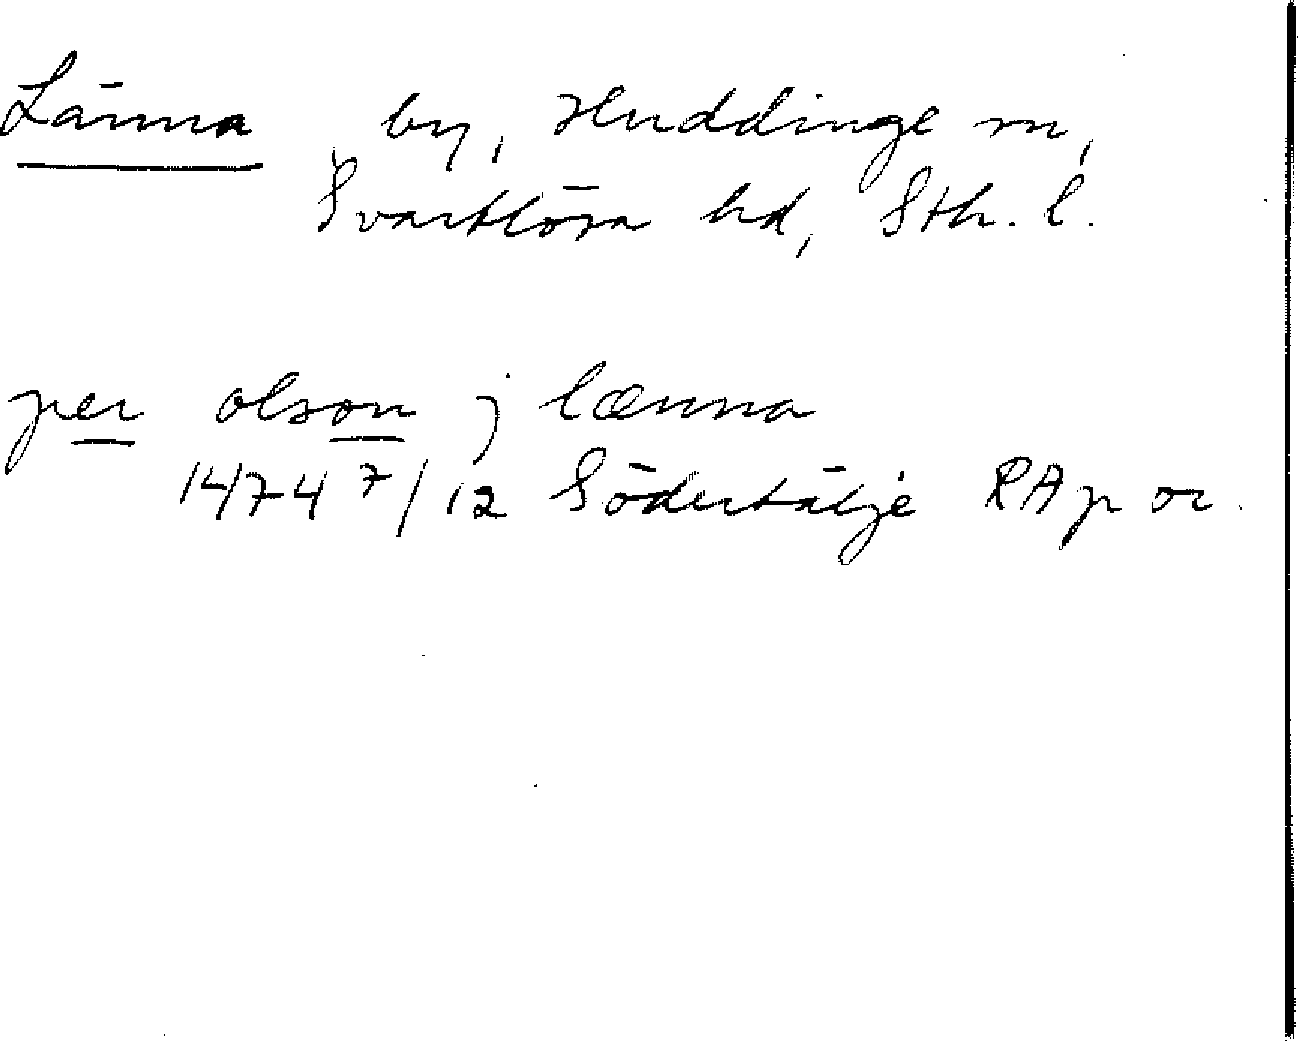 Länna by, Huddinge sn,
Svartlösa hd, Sth. l.
per olson j lænna
1474 7/12 Södertälje RAp or.